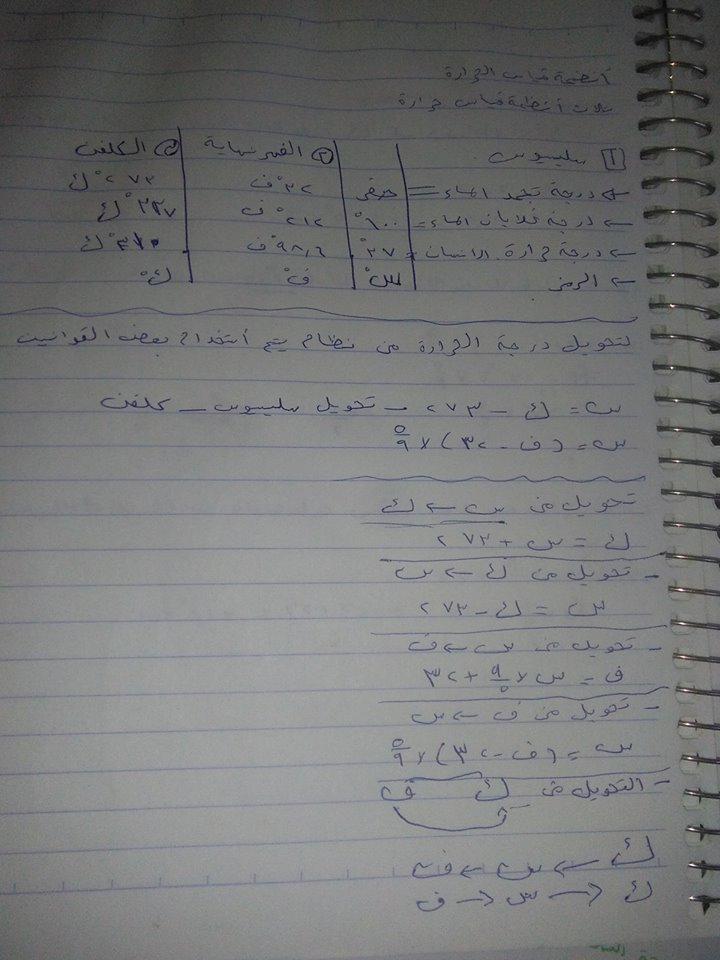 أنظمة قياس الحرارة
ثلاث أنظمة قياس حرارة
١ سليسيوس | ٢ الفهرنهاية | ٣ الكلفن
← درجة تجمد الماء = صفر | ٣٢° ف | ٢٧٣° ك
← درجة غلايان الماء = ١٠٠° | ٢١٢° ف | ك
← درجة حرارة الانسان = ٣٧° | ٩٨,٦° ف | ٣١٠° ك
← الرمز | س° | ف° | ك°
لتحويل درجة الحرارة من نظام يتم أستخدام بعض القوانين
س = ك - ٢٧٣ - تحويل سليسيوس - كلفن
س = (ف - ٣٢) × ٥/٩
تحويل من س ← ك
ك = س + ٢٧٣
- تحويل من ك ← س
س = ك - ٢٧٣
- تحويل من س ← ف
ف = س × ٩/٥ + ٣٢
- تحويل من ف ← س
س = (ف - ٣٢) × ٥/٩
- التحويل من ك ف
ك ← س ← ف
ك → س → ف